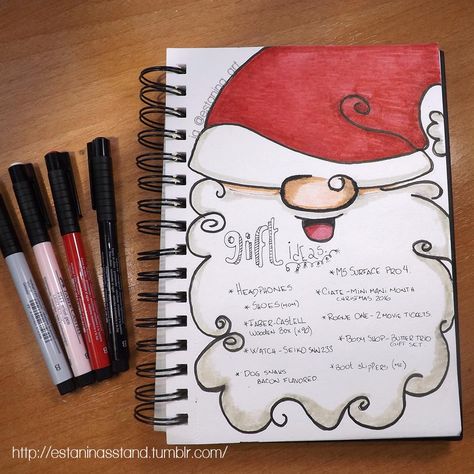 @estanina_art
gift ideas
* Headphones
* Shoes (mom)
* Faber-Castell
Wooden Box (x90)
* Watch - Seiko
* Dog Snaks
Bacon Flavored
* MS Surface Pro 4
* Ciate - Mini Mani Month
Christmas 2016
* Rogue One - 2 Movie Tickets
* Body Shop - Butter Trio
Gift Set
* Boot Slippers (me)
http://estaninasstand.tumblr.com/